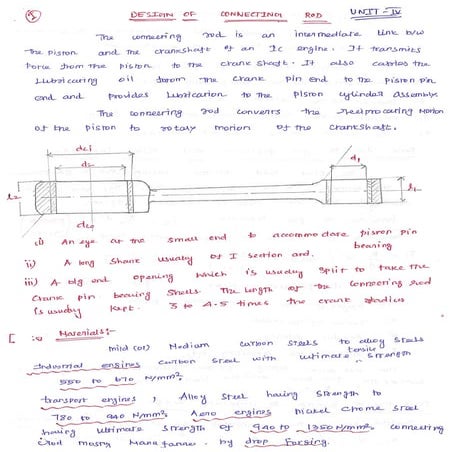 DESIGN OF CONNECTING ROD UNIT-IV
The connecting rod is an intermediate link b/w
the piston and the crankshaft of an IC engine. It transmits
force from the piston to the crank shaft. It also carries the
Lubricating oil from the crank pin end to the piston pin
end and provides Lubrication to the piston cylinder assembly.
The connecting rod converts the reciprocating motion
of the piston to rotary motion of the crankshaft.
dci
dc
d1
l2
l1
i) An eye at the small end to accommodate piston pin
bearing
ii) A long shank usually of I section and.
iii) A big end opening which is usually split to take the
crank pin bearing shells. The length of the connecting rod
is usually kept 3 to 4.5 times the crank radius
Materials:-
mild (or) Medium carbon steels to alloy steels
Industrial engines carbon steel with ultimate tensile strength
550 to 670 N/mm².
transport engines, Alloy steel having strength to
780 to 940 N/mm², Aero engines nickel chrome steel
having ultimate strength of 940 to 1350 N/mm². connecting
rod mostly manufacture. by drop forging.